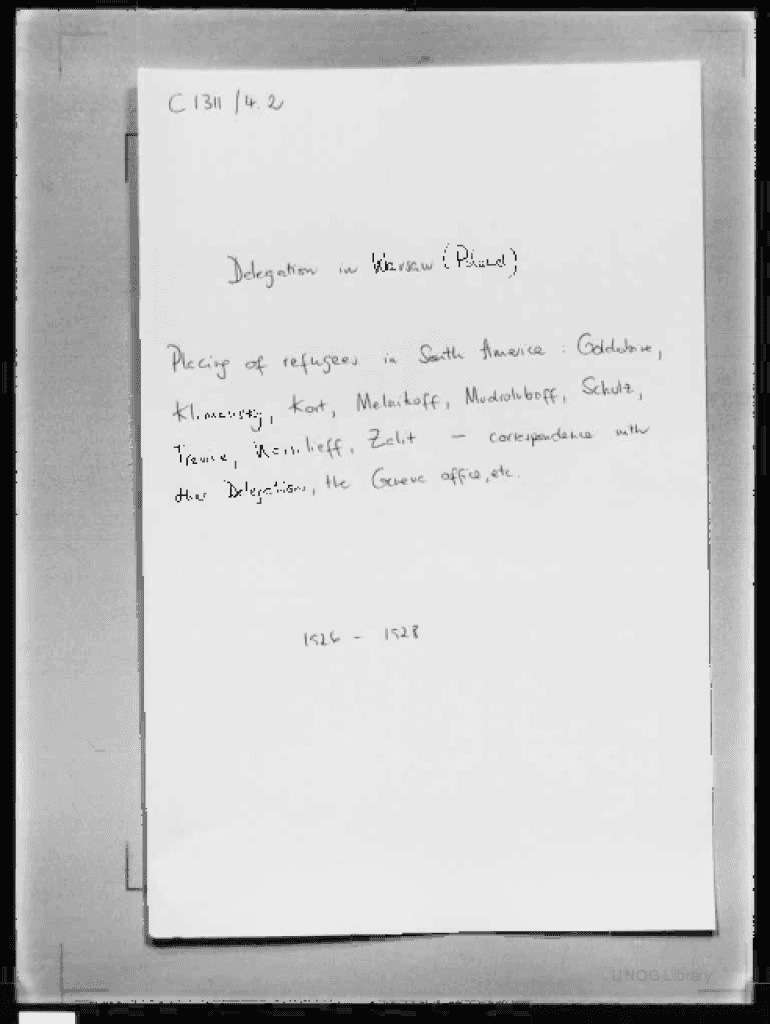 C 1311 / 4.2
Delegation in Warsaw (Poland)
Placing of refugees in South America :
Kort, Melnikoff, Mudroluboff, Schulz,
Wassilieff, Zalit — correspondence with
other Delegations, the Geneva office, etc.
1926 - 1928
UNOG Library